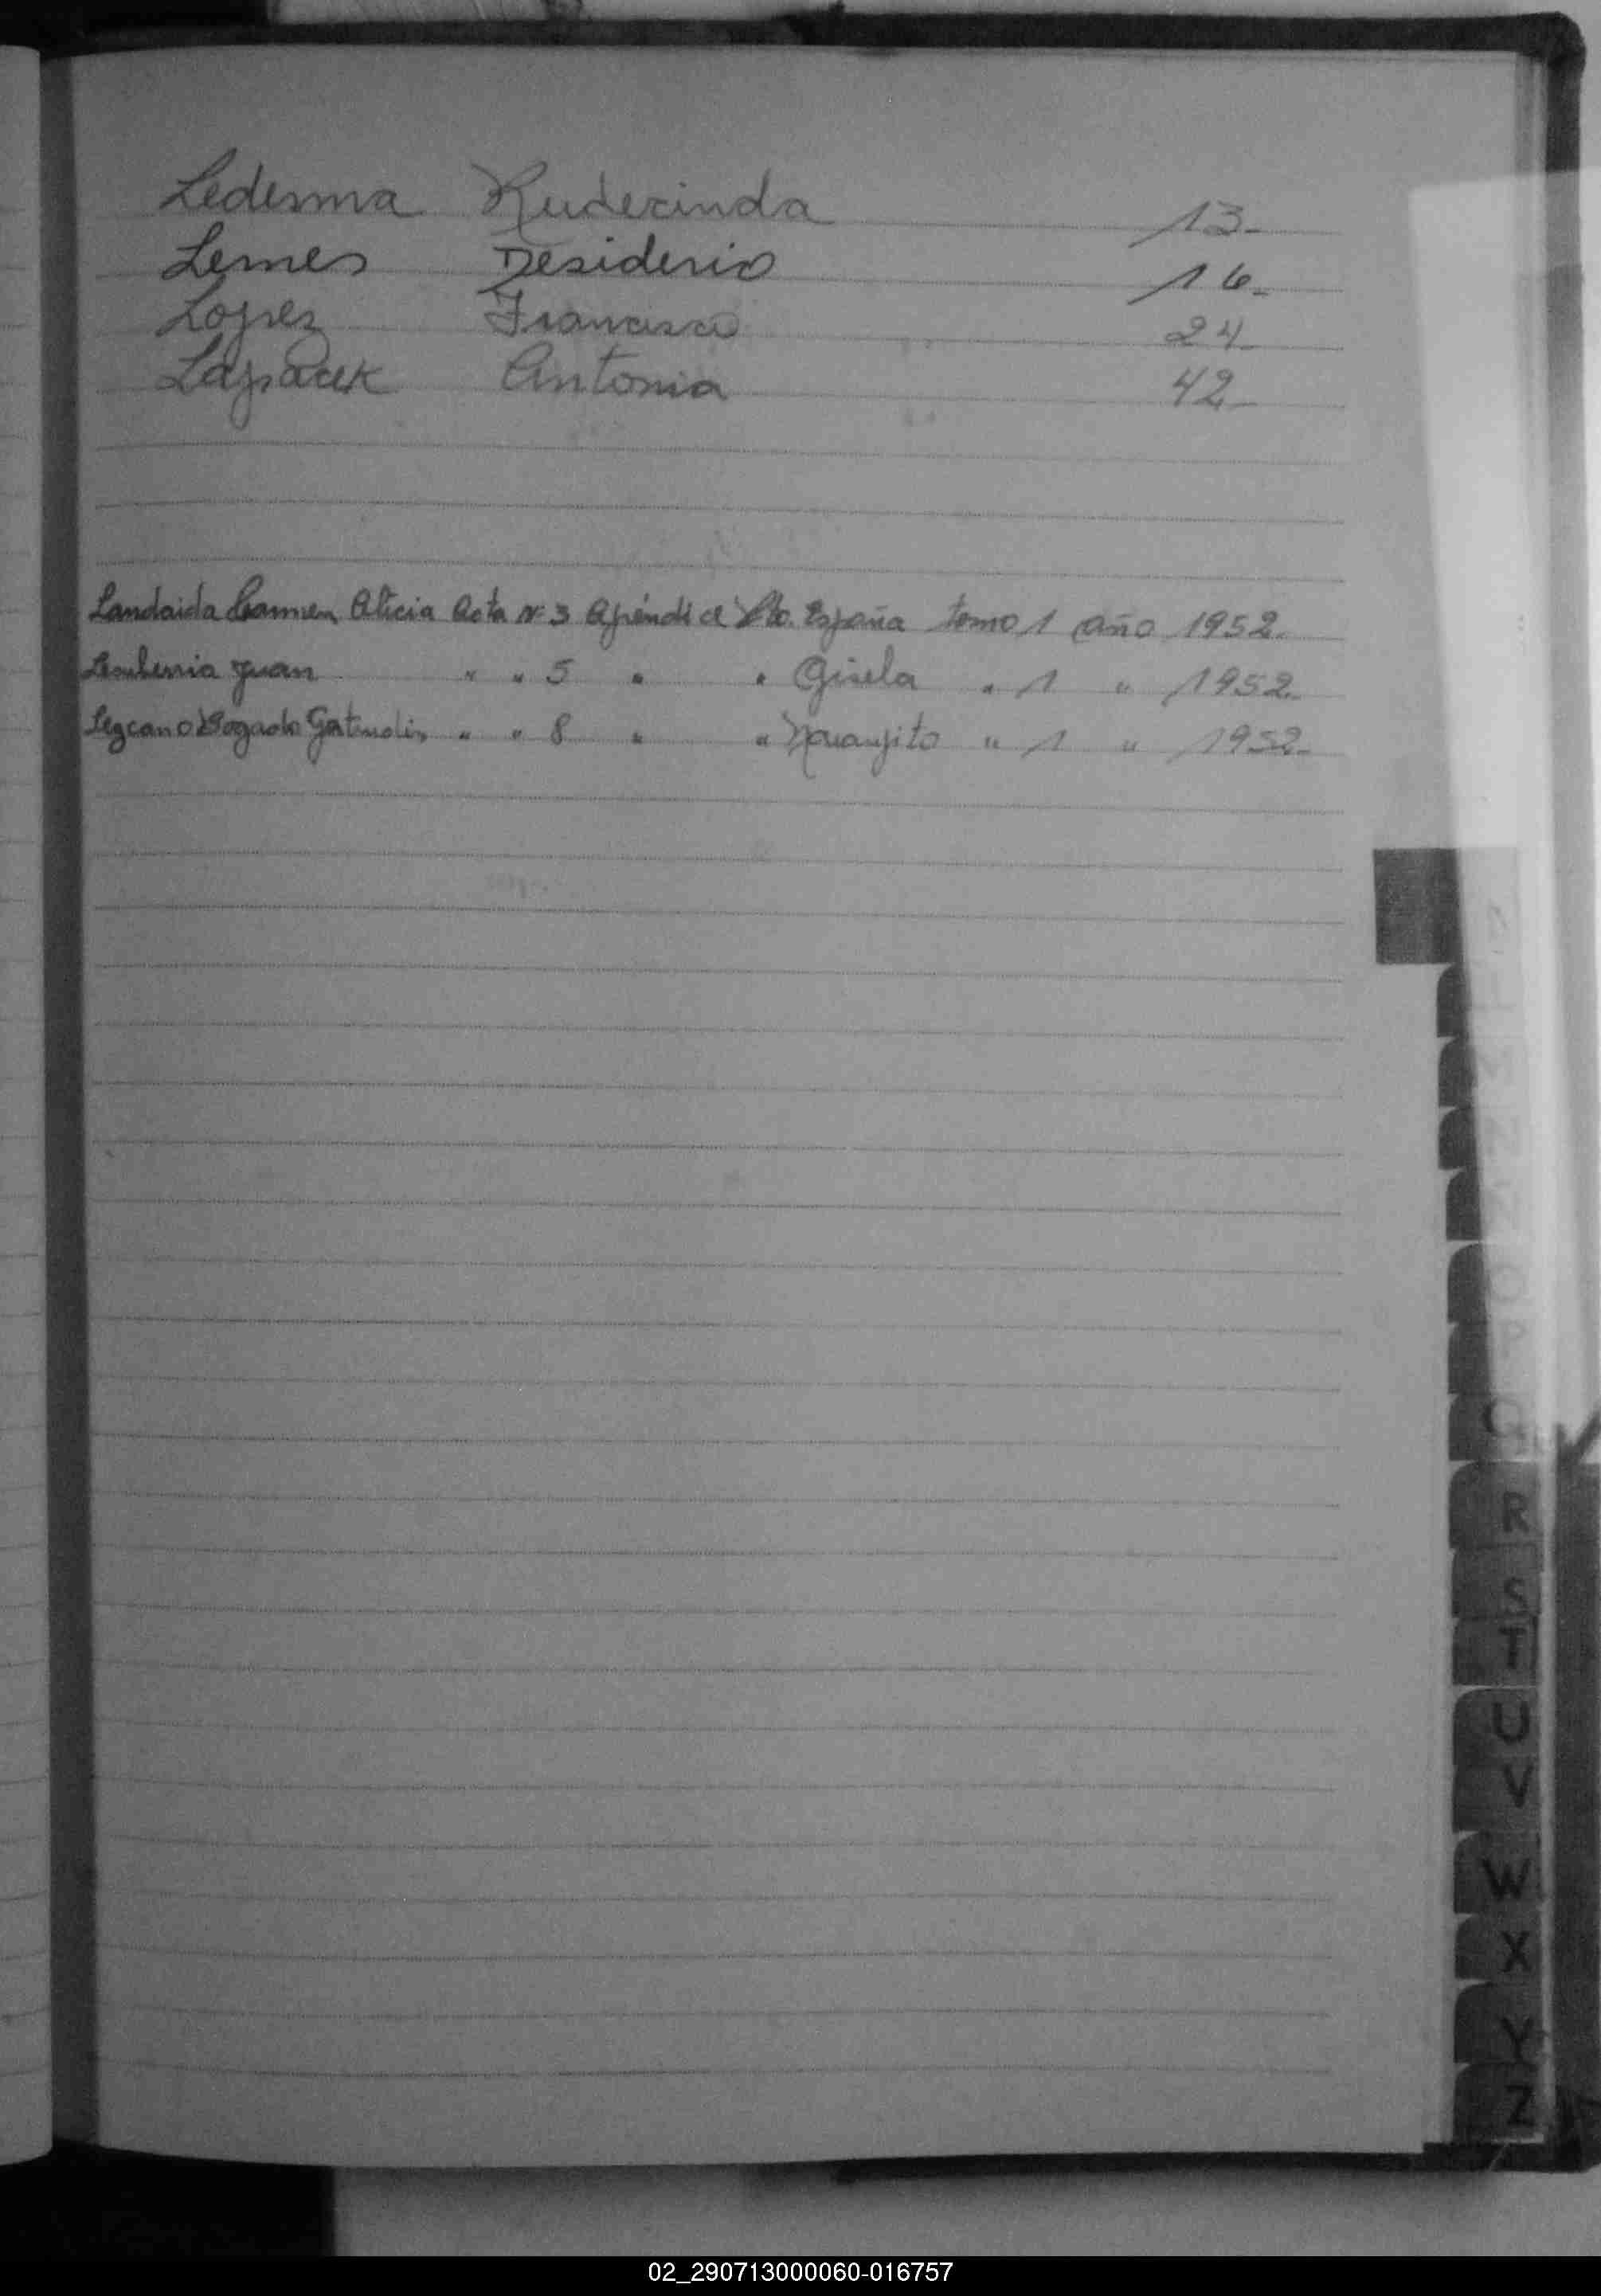 Ledesma Ruderinda 13-
Lemes Desiderio 16-
Lopez Francisco 24-
Lapacek Antonia 42-
Landaida Carmen Alicia Acta Nº 3 Apéndice Pto. España tomo 1 año 1952.
Juan " " 5 " " Gisela " 1 " 1952.
Lezcano Bogado " " 8 " " Naranjito " 1 " 1952-
M
N
O
P
Q
R
S
T
U
V
W
X
Y
Z
02_290713000060-016757